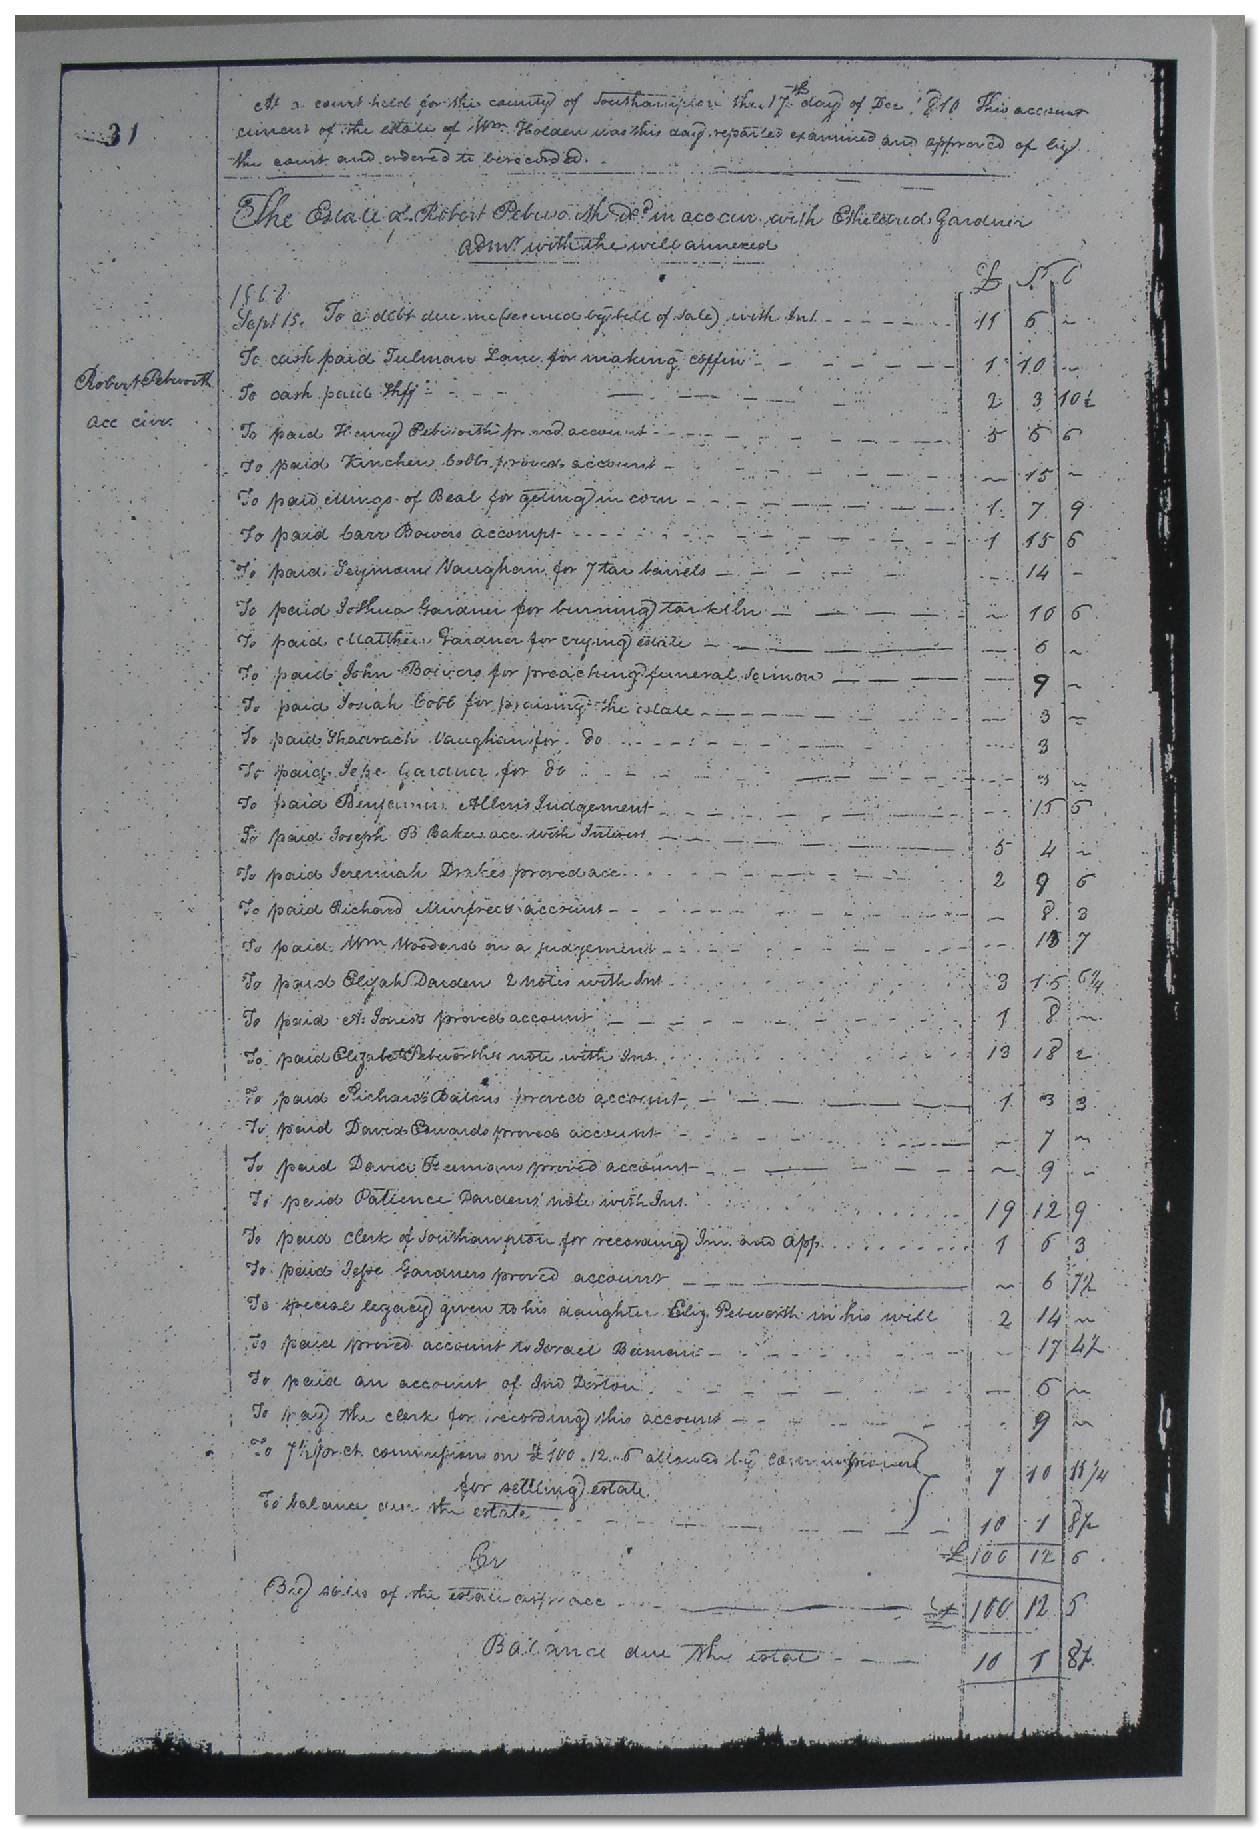 31
At a court held for the county of Southampton the 17th day of Dec 1810 This account
current of the estate of Wm Holden was this day reported examined and approved of by
the court and ordered to be recorded.
The Estate of Robert Pebworth decd in acc cur. with Etheldred Gardner
admr with the will annexed
£ S
Sept 15. To a debt due me (secured by bill of sale) with Int 11 6 ~
To cash paid Tulman Lane for making coffin 1 10 ~
Robert Pebworth
acc curr.
To cash paid Shff 2 3 10½
To paid Henry Pebworths proved account 5 5 6
To paid Kinchen Cobbs proved account ~ 15 ~
To paid Mings of Beal for geting in corn 1 7 9
To paid Carr Bowers accompt 1 15 6
To paid Seymour Vaughan for 7 tar barrels 14 ~
To paid Joshua Gardner for burning tar kiln ~ 10 6
To paid Matthew Gardner for crying estate 6 ~
To paid John Bowers for preaching funeral Sermon 9 ~
To paid Josiah Cobb for praising the estate 3 ~
To paid Shadrach Vaughan for do 3
To paid Jesse Gardner for do 3 ~
To paid Benjamin Allens Judgement 15 6
To paid Joseph B Baker acc with Interest 5 4 ~
To paid Jeremiah Drakes proved acc 2 9 6
To paid Richard Murfrees account ~ 8 3
To paid Wm on a judgement 7
To paid Elijah Darden 2 notes with Int 3 15 6¼
To paid A. Jones proved account 1 8 ~
To paid Elizabeth Pebworths note with Int. 13 18 2
To paid Richard proved account 1 3 3
To paid David Edwards proved account ~ 7 ~
To paid David Beamans proved account ~ 9 ~
To paid Patience Dardens note with Int. 19 12 9
To paid clerk of Southampton for recording Inv. and App. 1 6 3
To paid Jesse Gardners proved account ~ 6 7½
To special legacy given to his daughter Eliz. Pebworth in his will 2 14 ~
To paid proved account to Israel Beman 17 4½
To paid an account of Jno 6 ~
To pay the clerk for recording this account 9 ~
To 7½ pr ct. commission on £100..12..6 allowed by commissioners
for settling estate 7 10 11¼
To balance due the estate 10 1 8½
£ 100 12 6
Cr
By sales of the estate as pr acc £ 100 12 5
Balance due the estate 10 1 8½